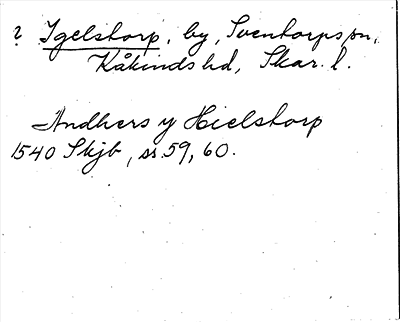 ? Igelstorp, by, Sventorps sn,
Kåkinds hd, Skar. l.
Andhers y Hielstorp
1540 Skjb, ss. 59, 60.